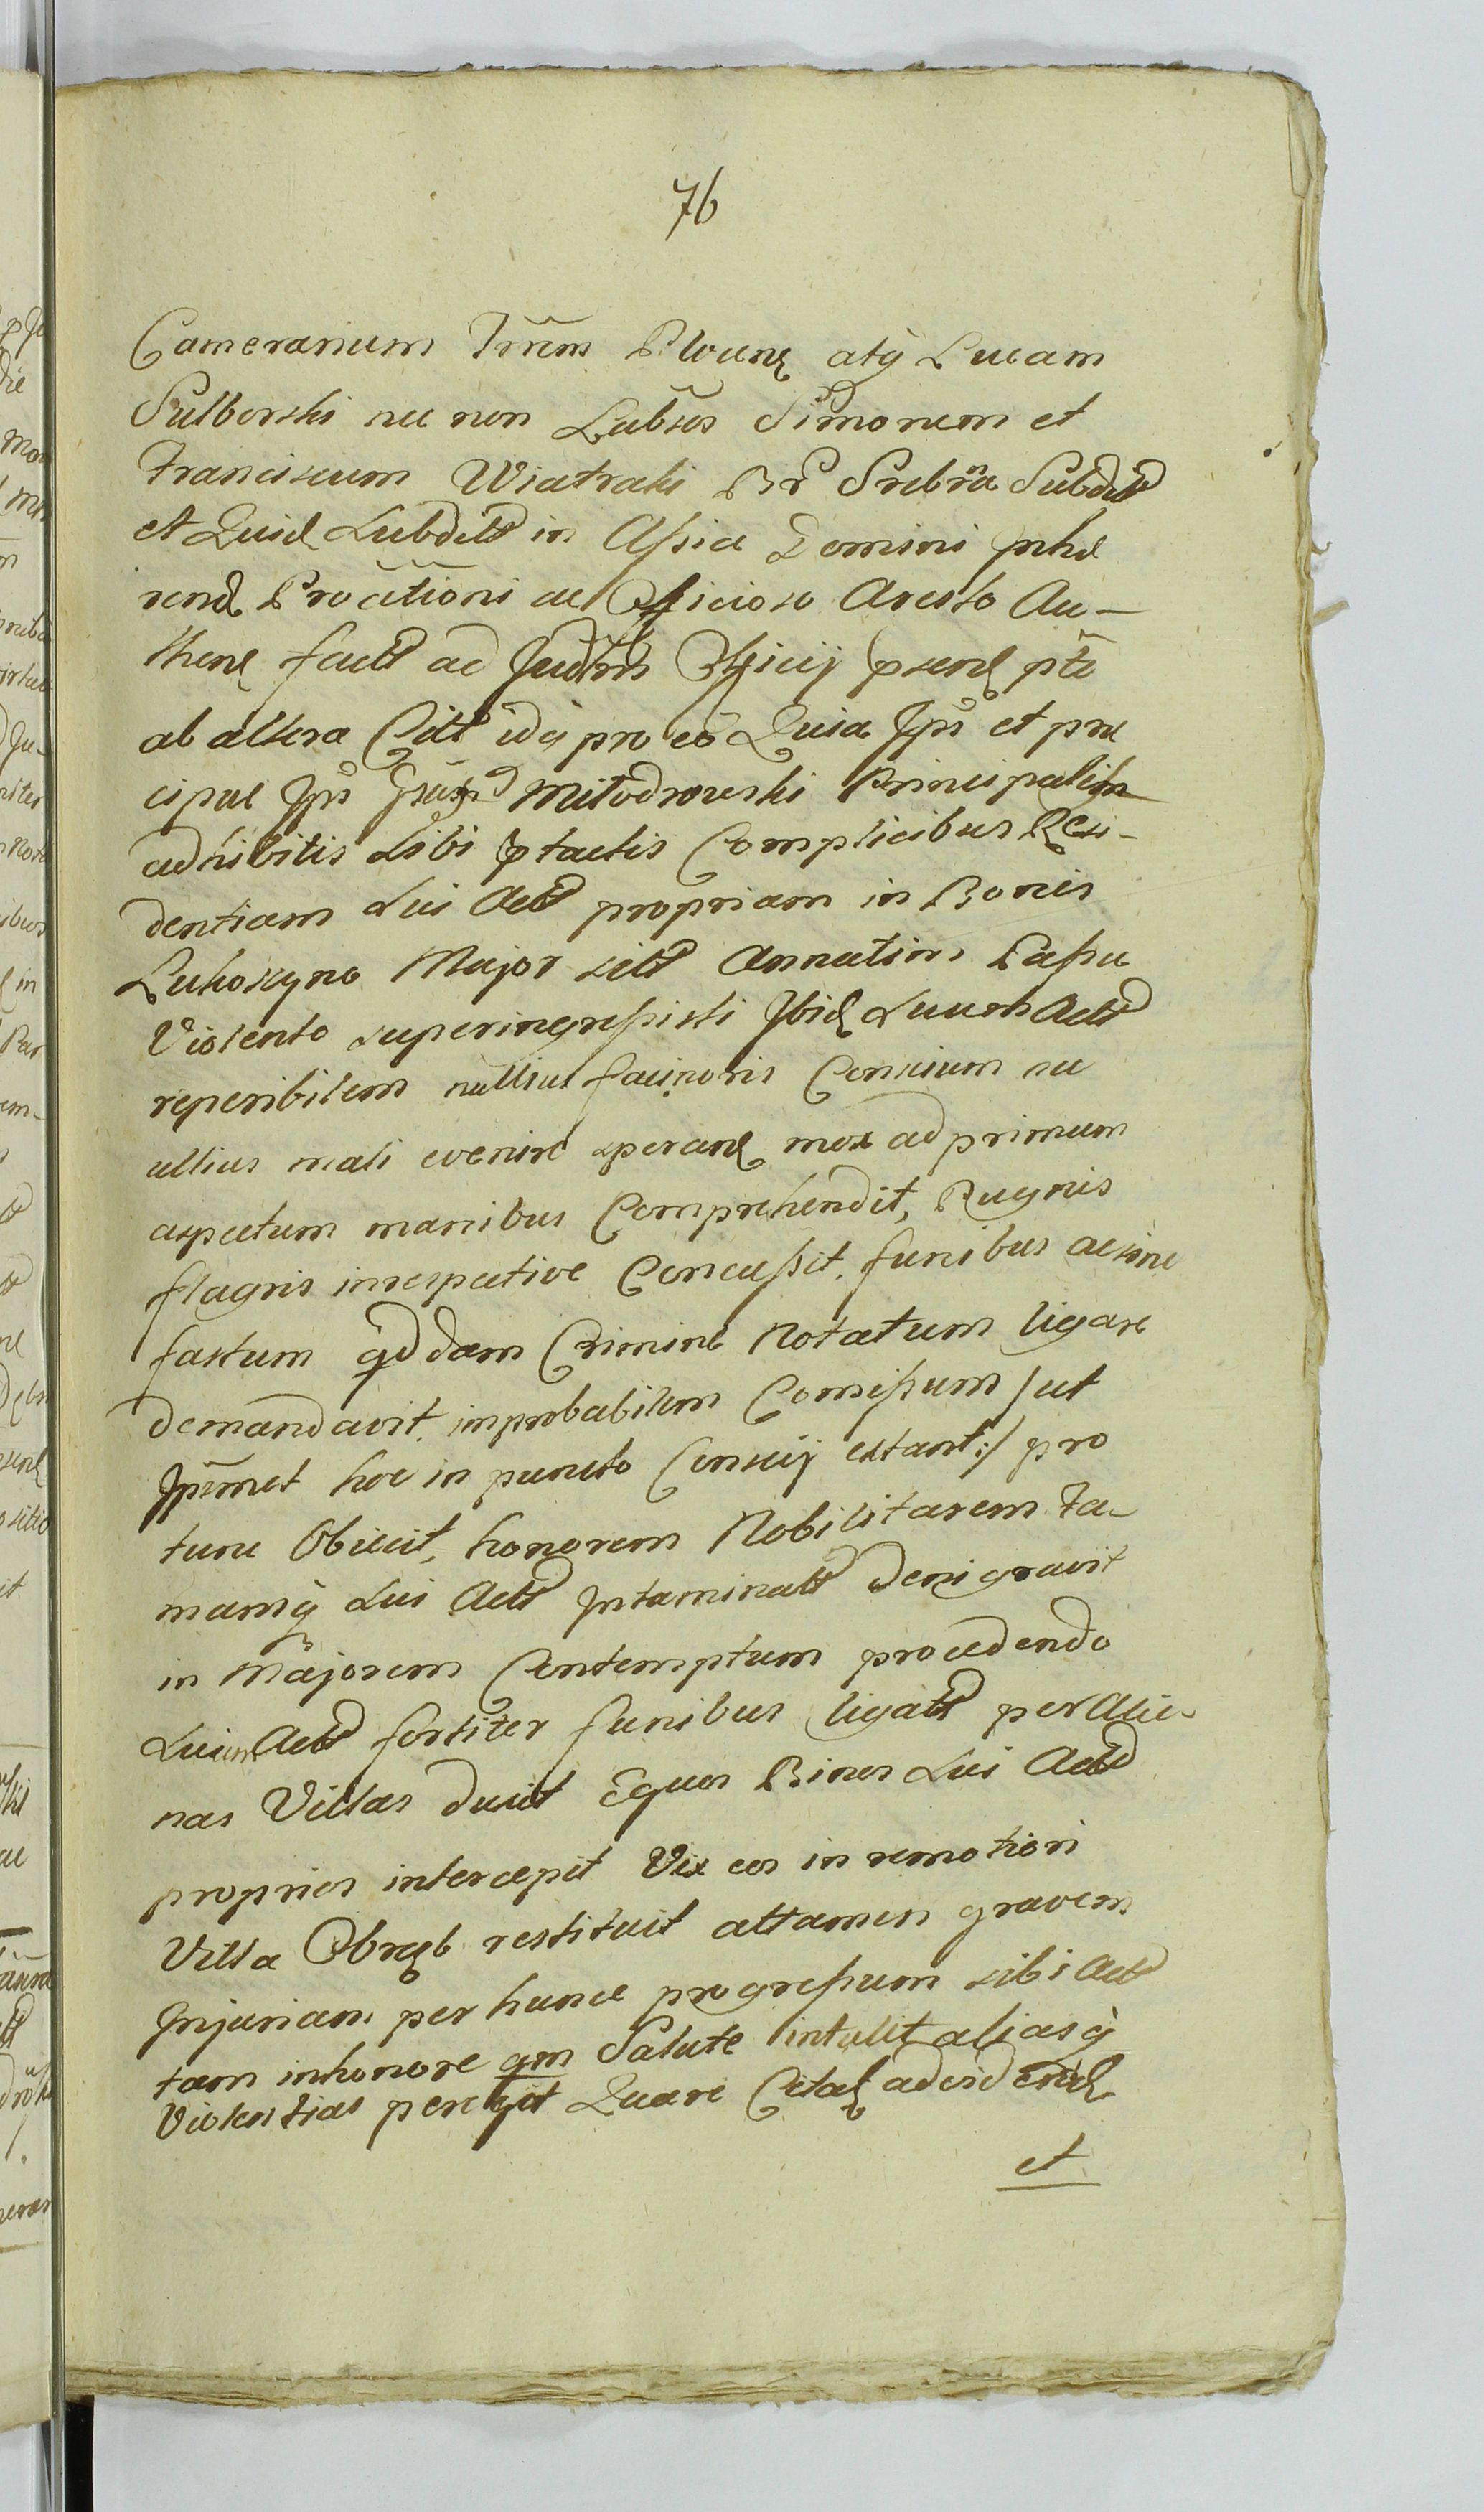 76
Camerarium Trrem Plocen atq Lucam
Sulborski nec non Labsos Simonem et
Franciscum Wiatraki Br Srebrna Subdit
et Quid Subdit in Assia Domini inhe
rend Procutioni ac Officioso Aresto Au-
then fact ad Judm Officij psen pte
ab altera Citt idq pro eo Quia Ips et prae
cipue Ips Mitodrowski Principaliter
adhibitis Sibi ptactis Complicibus Resi-
dentiam Sui Act propriam in Bonis
Luhoszyno Major sitt Annatim Passu
Violento superingressisti Ibid Suum Act
reperibilem nullius facinoris Conscium nec
ullius mali evenire speran mox ad primum
aspectum manibus Comprehendit, Pugnis
flagris irrespective Concussit. funibus ac sine
fastum qddam Crimine Notatum ligare
demandavit. improbabilem Comissum / ut
Ipsemet hoc in puncto Conscij extant:/ pro
tunc Obiicit, honorem Nobilitarem Fa-
mamq Sui Act Intaminatt denigravit
in Majorem Contemptum procedendo
Suum Act fortiter funibus ligatt per Alie-
nas Villas duxit Equos Binos Sui Act
proprios intercepit Vix eos in remotiori
Villa Obremb restituit attamen gravem
Injuriam per hunc progressum sibi Act
tam in honore qm Salute intulit aliasq
Violentias peregit Quare Citat ad id end
et